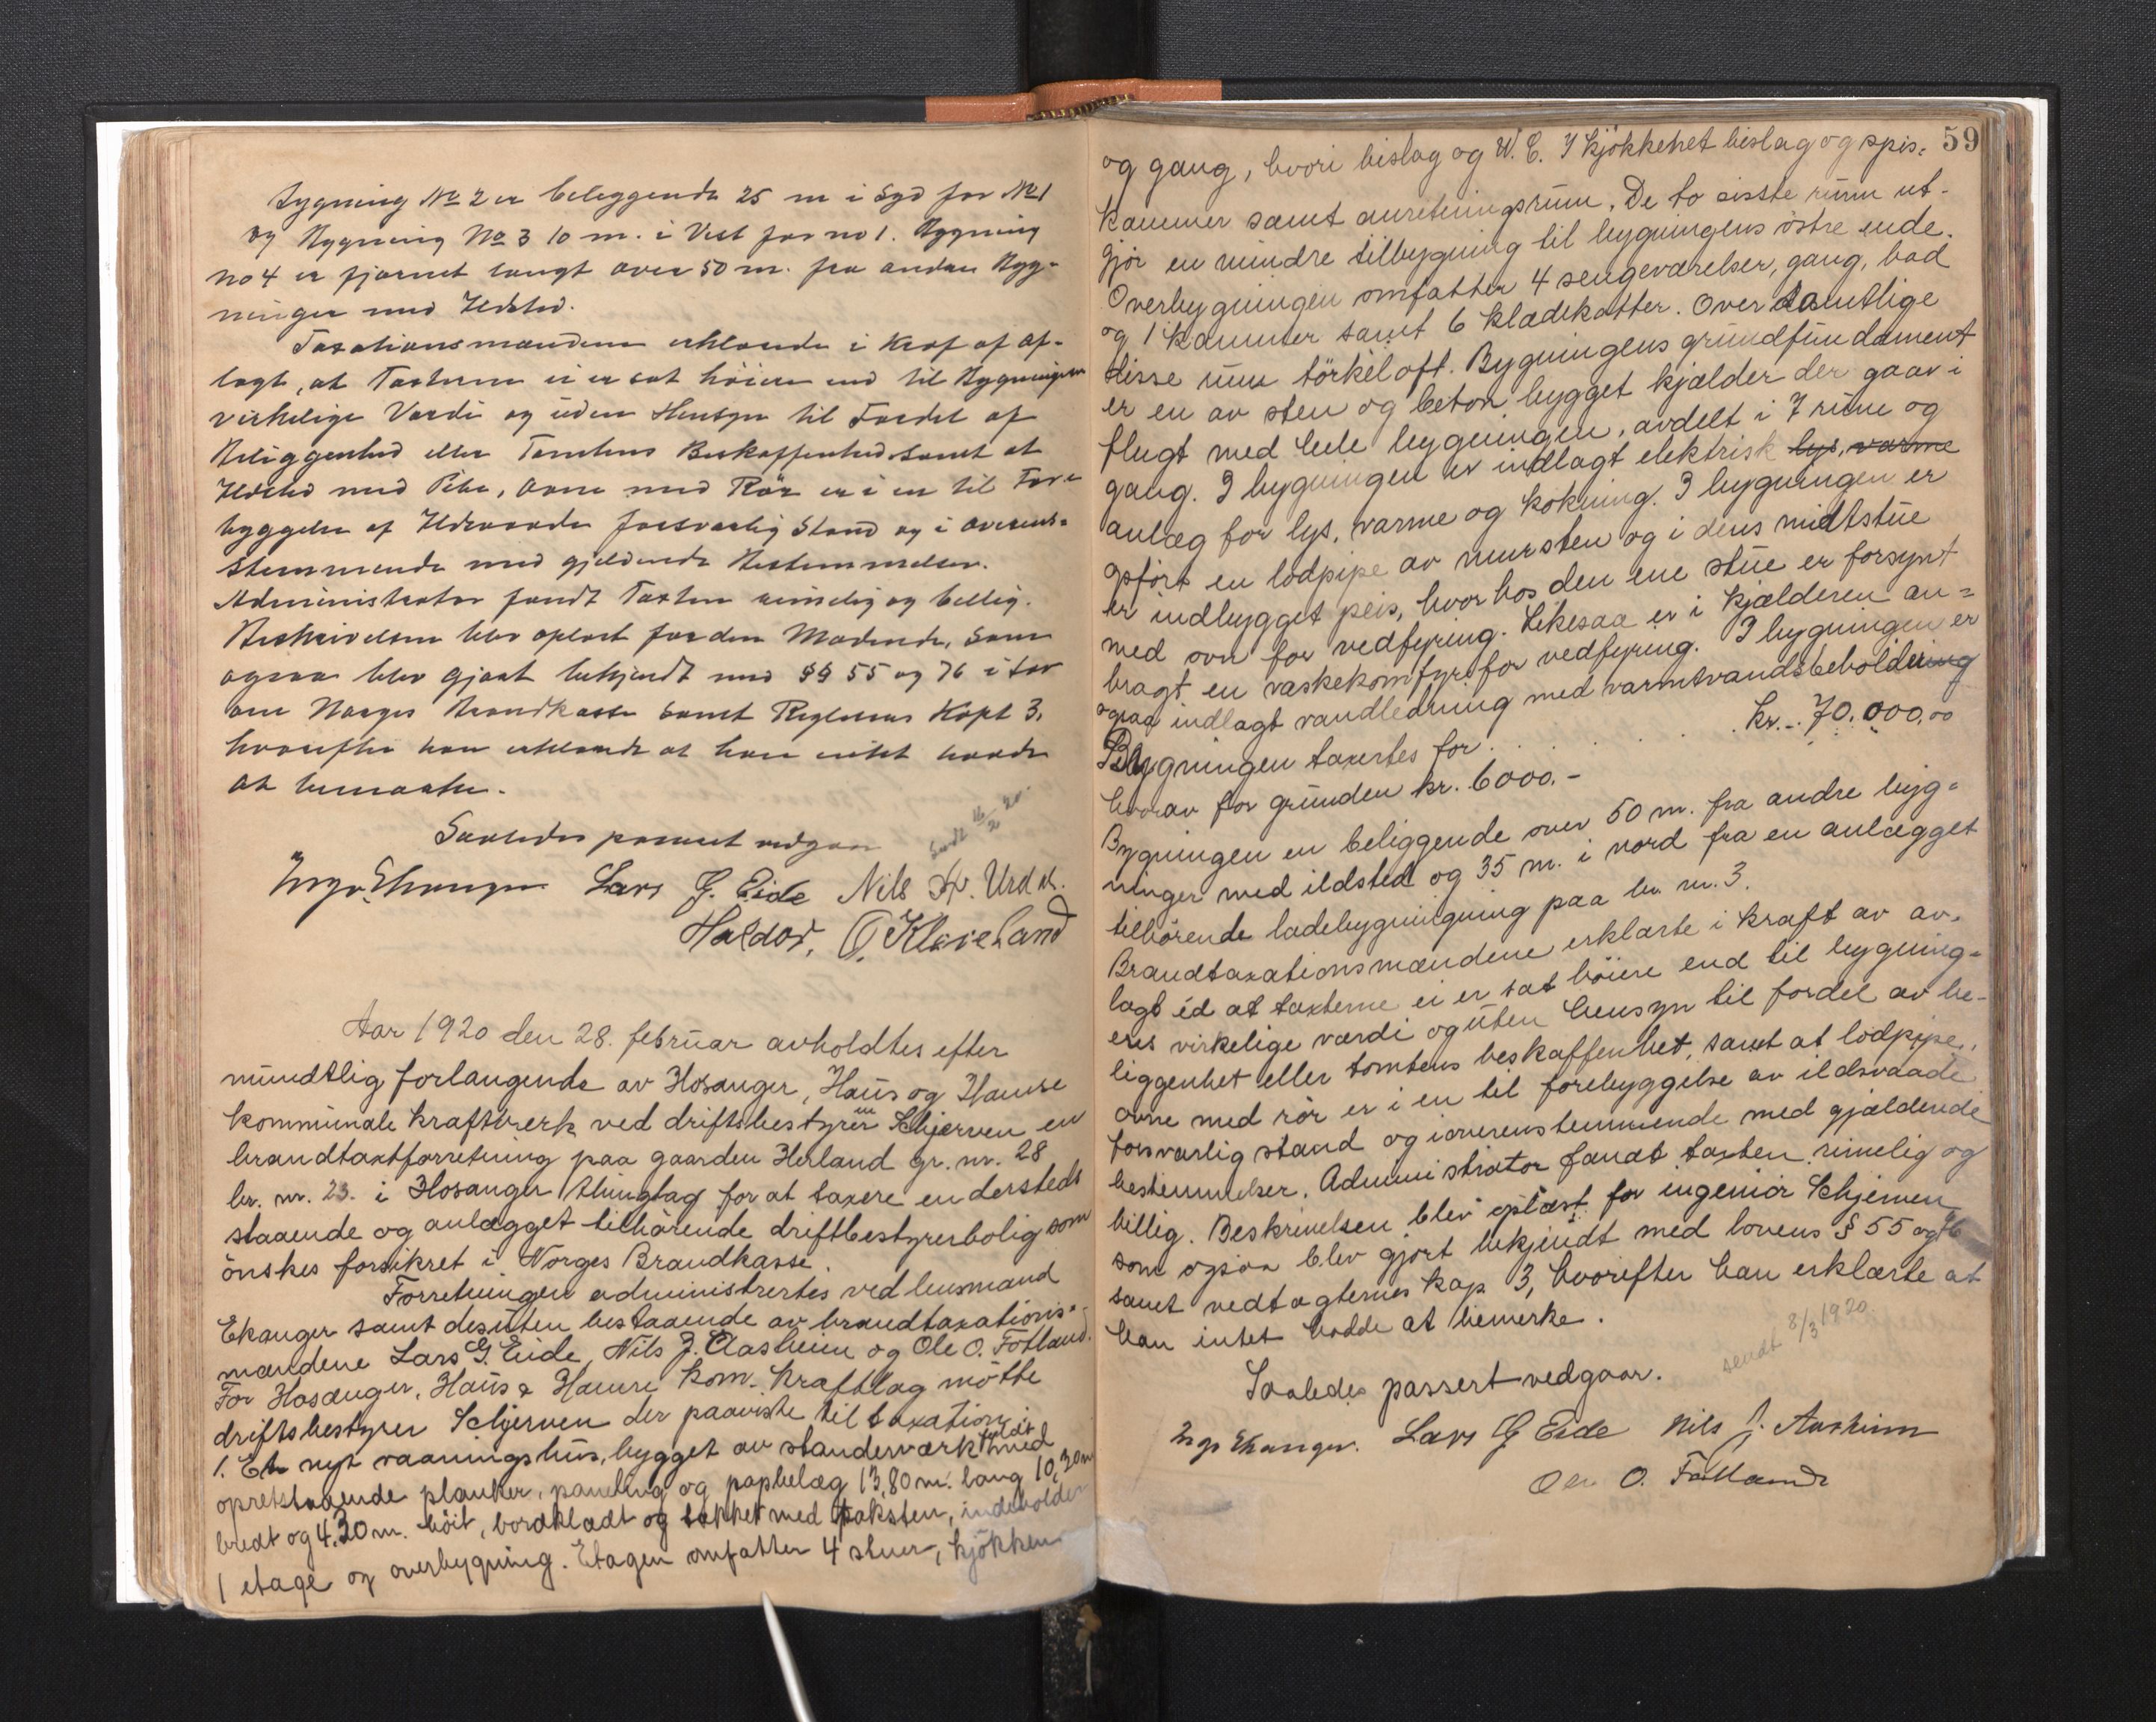 Bygning No 2 er beleggende 25 m i Syd for No 1
og Bygning No 3 10 m. i Vest for no 1. Bygning
no 4 er fjernet langt over 50 m. fra anden Byg-
ninger med Ildsted.
Taxationsmændene erklærede i Kraf af af-
lagt, at Taxterne ei er sat höiere end til Bygningens
virkelige Værdi og uden Hensyn til Fordel af
Beliggenhed eller Tomtens Beskaffenhed samt at
Ildsted med Pibe, ovne med Rör er i en til Fore
byggelse af Ildsvaade forsvarlig Stand og i overens-
stemmende med gjeldende Bestemmelser.
Administrator fandt Taxten rimelig og billig.
Beskrivelsen blev oplæst for den Mödende, som
ogsaa blev gjort bekjendt med §§ 55 og 76 i lov
om Norges Brandkasse samt Reglernes Kapt 3,
hvorefter han erklærede at have intet havde
at bemærke.
Saaledes passeret vedgaar
Sendt 16/2 20.
Ingv. Ekanger Lars G. Eide Nils H. Urdal.
Haldor. O. Kleiveland
Aar 1920 den 28. februar avholdtes efter
mundtlig forlangende av Hosanger, Haus og Hamre
kommunale kraftverk ved driftsbestyrer Schjerven en
brandtaxtforretning paa gaarden Herland gr. nr. 28
br. nr. 23. i Hosanger thinglag for at taxere en dersteds
staaende og anlægget tilhörende driftbestyrerbolig som
önskes forsikret i Norges Brandkasse.
Forretningen administrertes ved lensmand
Ekanger samt desuten bestaaende av brandtaxations-
mændene Lars G. Eide, Nils J. Aasheim og Ole O. Fotland.
For Hosanger, Haus & Hamre kom. Kraftlag mötte
driftsbestyrer Schjerven der paaviste til taxation:
1. Et nyt vaaningshus, bygget av standerværk fyldt med
opretstaaende planker, paneling og papbelæg 13,80 m. lang 10,30 m
bredt og 4,30 m. höit, bordklædt og tækket med taksten, indeholder
1 etage og overbygning. Etagen omfatter 4 stuer, kjökken
59
og gang, hvori bislag og W. C. I kjökkenet bislag og spis-
kammer samt anretningsrum. De to sisste rum ut-
gjör en mindre tilbygning til bygningens östre ende.
Overbygningen omfatter 4 sengeværelser, gang, bad
og 1 kammer samt 6 klædskotter. Over samtlige
disse rum törkeloft. Bygningens grundfundament
er en av sten og beton bygget kjælder der gaar i
flugt med hele bygningen, avdelt i 7 rum og
gang. I bygningen er indlagt elektrisk lys, varme
anlæg for lys, varme og kokning. I bygningen er
opfört en lodpipe av mursten og i dens midtstue
er indbygget peis, hvorhos den ene stue er forsynt
med ovn for vedfyring. Likesaa er i kjælderen an-
bragt en vaskekomfyr for vedfyring. I bygningen er
ogsaa indlagt vandledning med varmtvandsbeholdering
Bygningen taxertes for . . . . . . kr. 70.000,00
hvorav for grunden kr. 6000.-
Bygningen en beliggende over 50 m. fra andre byg-
ninger med ildsted og 35 m. i nord fra en anlægget
tilhörende ladebygningning paa br. nr. 3.
Brandtaxationsmændene erklærte i kraft av av-
lagt éd at taxterne ei er sat höiere end til bygning-
ens virkelige værdi og uten hensyn til fordel av be-
liggenhet eller tomtens beskaffenhet, samt at lodpipe,
ovne med rör er i en til forebyggelse av ildsvaade
forsvarlig stand og i overenstemmende med gjældende
bestemmelser. Administrator fandt taxten rimelig og
billig. Beskrivelsen blev oplæst for ingeniör Schjerven
som ogsaa blev gjort bekjendt med lovens § 55 og 76
samt vedtægternes kap 3, hvorefter han erklærte at
han intet hadde at bemerke.
sendt 8/3 1920.
Saaledes passert vedgaar.
Ingv Ekanger. Lars G Eide Nils J. Aasheim
Ole O. Fotland